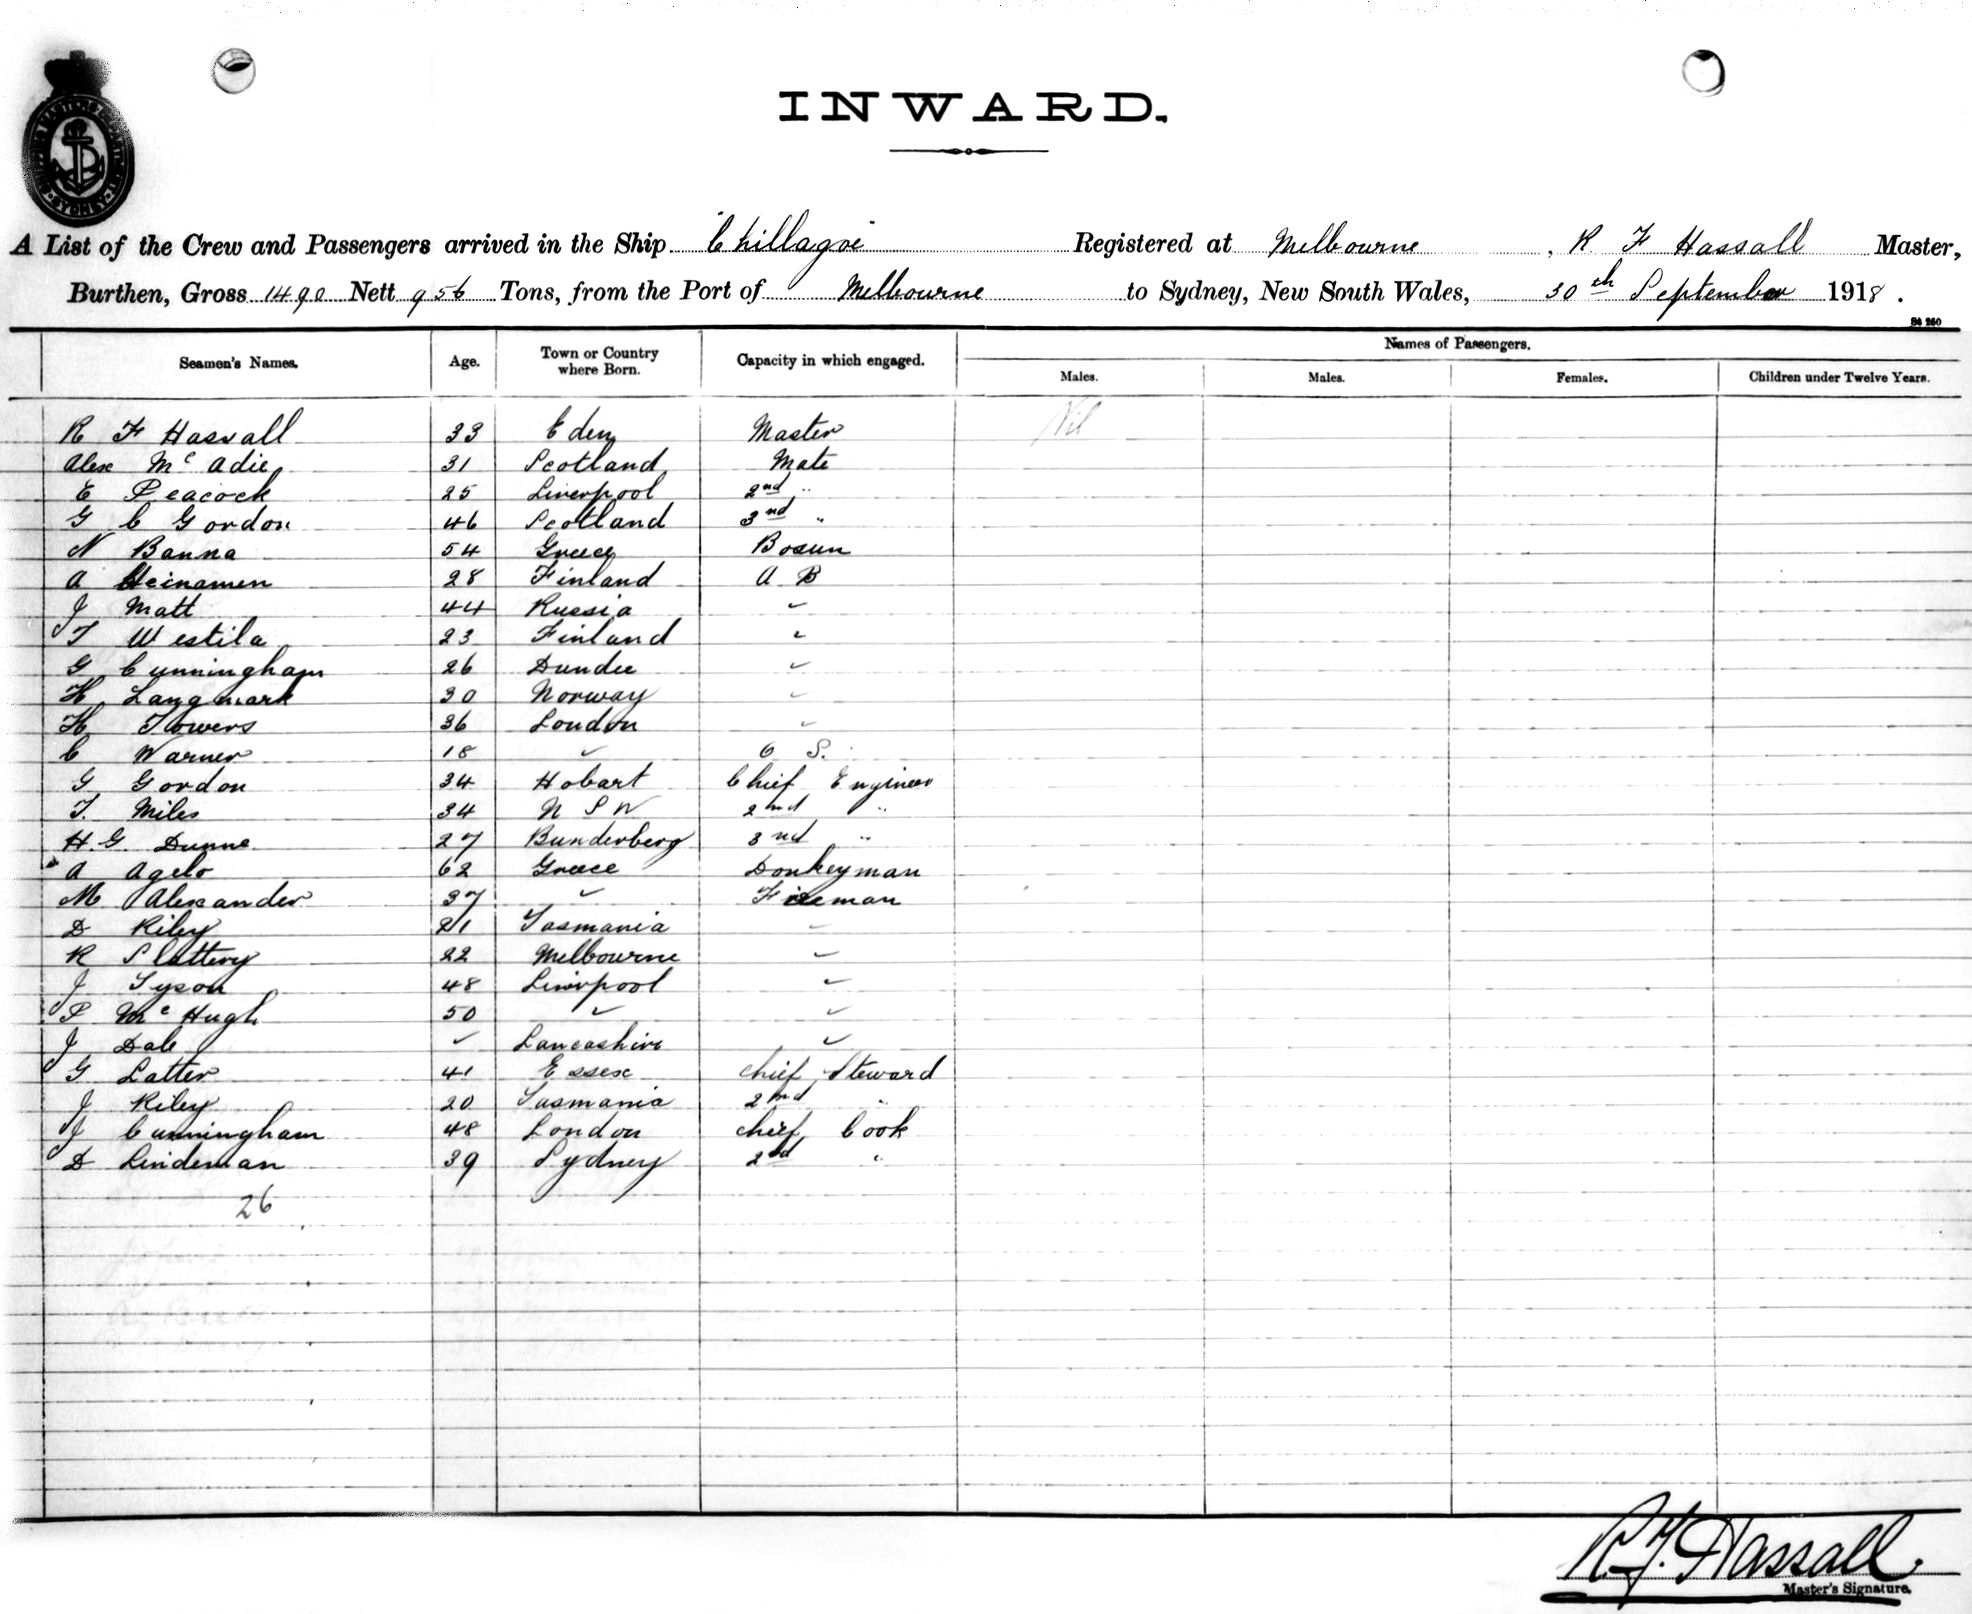 INWARD.
A List of the Crew and Passengers arrived in the Ship Chillagoe Registered at Melbourne, R F Hassall Master,
Burthen, Gross 1490 Nett 956 Tons, from the Port of Melbourne to Sydney, New South Wales, 30th September 1918.
Seamen's Names. Age. Town or Country where Born. Capacity in which engaged. Names of Passengers.
Males. Males. Females. Children under Twelve Years.
R F Hassall 33 Eden Master Nil
Alex McAdie 31 Scotland Mate
E Peacock 25 Liverpool 2nd "
G C Gordon 46 Scotland 3nd "
N Banna 54 Greece Bosun
A Heinamen 28 Finland A B
J Matt 44 Russia "
T Westila 23 Finland "
G Cunningham 26 Dundee "
H Langmark 30 Norway "
H Towers 36 London "
C Warner 18 " O S.
G Gordon 34 Hobart Chief Engineer
T. Miles 34 N S W 2nd "
H. G. Dunne 27 Bunderberg 3nd "
A Agelo 62 Greece Donkeyman
M Alexander 37 " Fireman
D Riley 21 Tasmania "
R Slattery 22 Melbourne "
J Tyson 48 Liverpool "
P McHugh 50 " "
J Dale " Lancashire "
G Latter 41 Essex Chief Steward
J Riley 20 Tasmania 2nd "
J Cunningham 48 London Chief Cook
D Lindeman 39 Sydney 2nd "
26
R. F. Hassall.
Master's Signature.